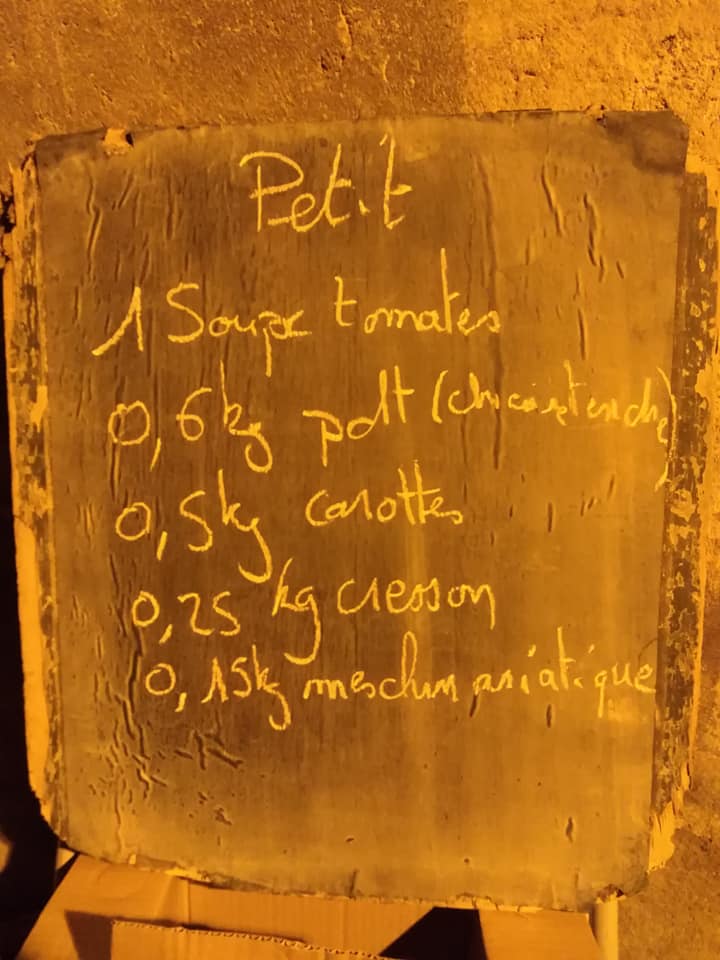 Petit
1 Soupe tomates
0,6kg pdt
0,5kg carottes
0,25 kg cresson
0,15kg mesclun asiatique